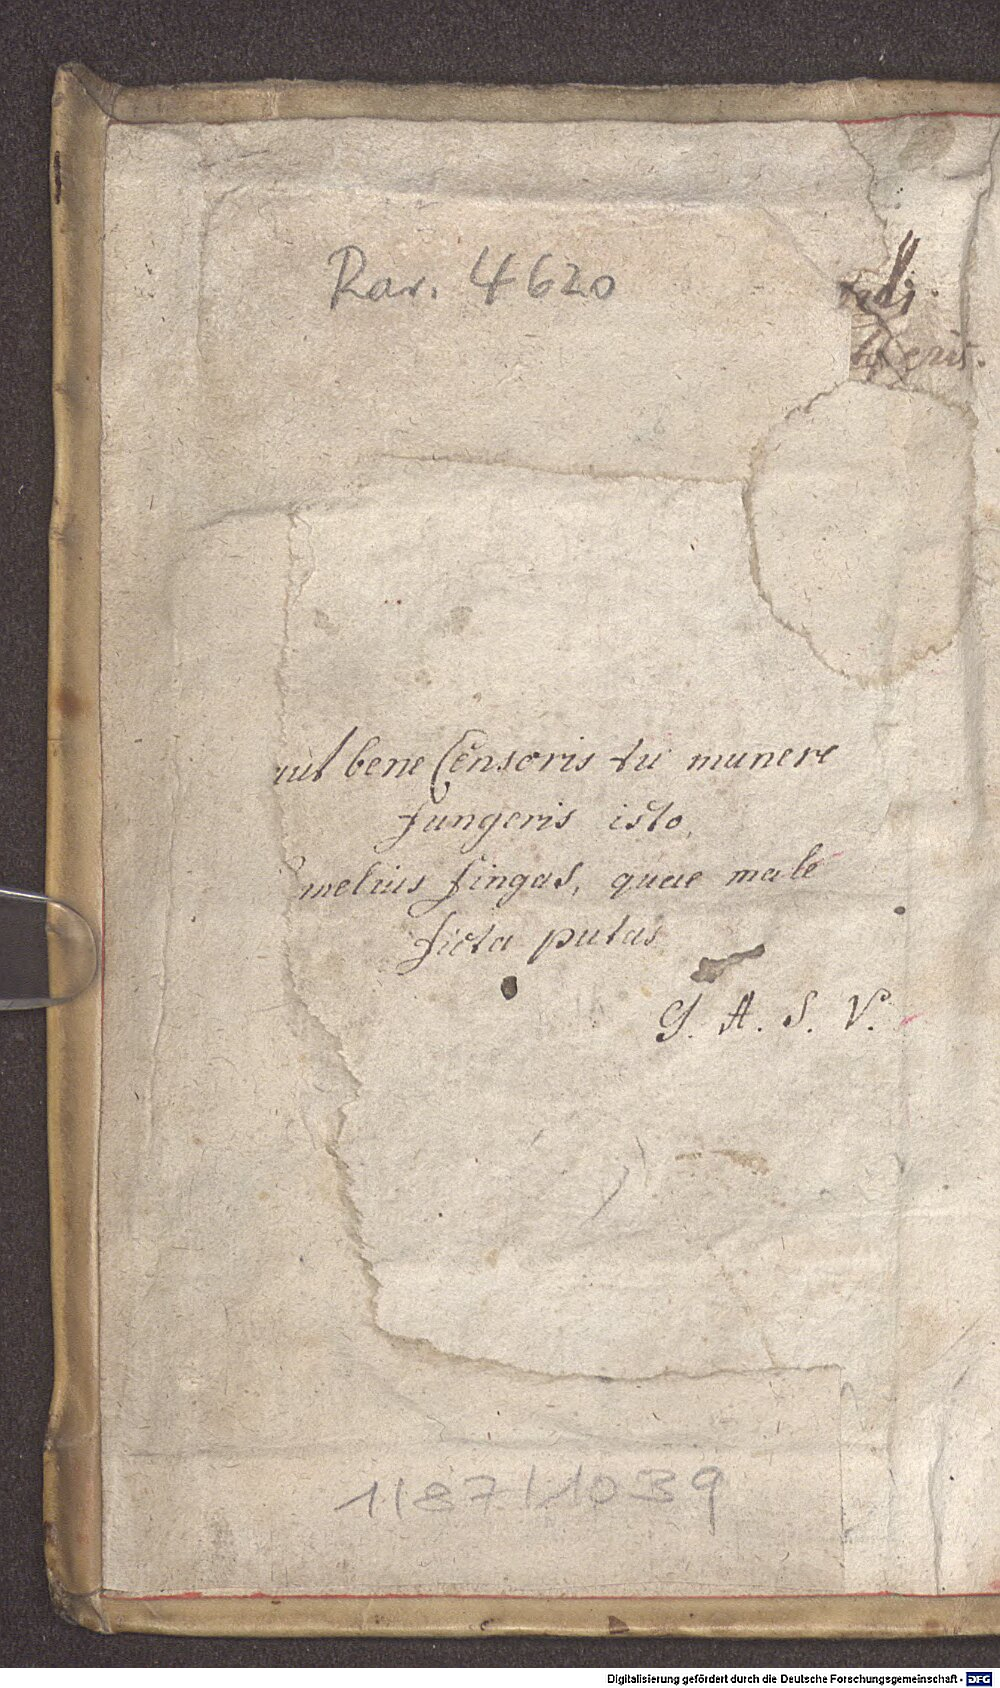 Rar. 4620
eris.
aut bene Censoris tu munere
fungeris isto,
melius fingas, quae male
ficta putas
G. A. S. V.
1187/1039
Digitalisierung gefördert durch die Deutsche Forschungsgemeinschaft - DFG